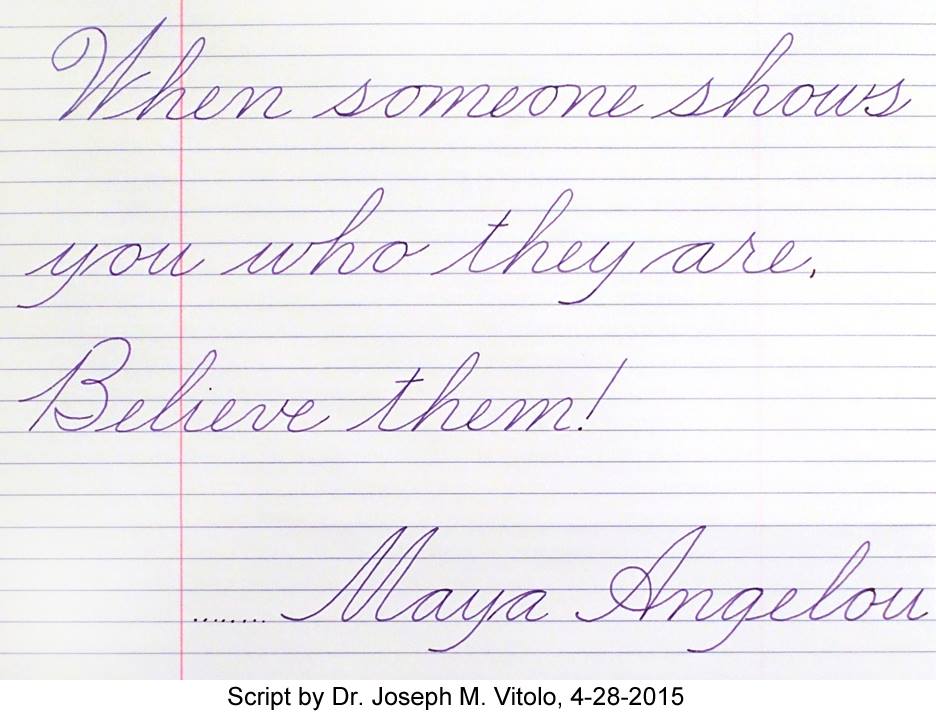 When someone shows
you who they are,
Believe them!
........ Maya Angelou
Script by Dr. Joseph M. Vitolo, 4-28-2015